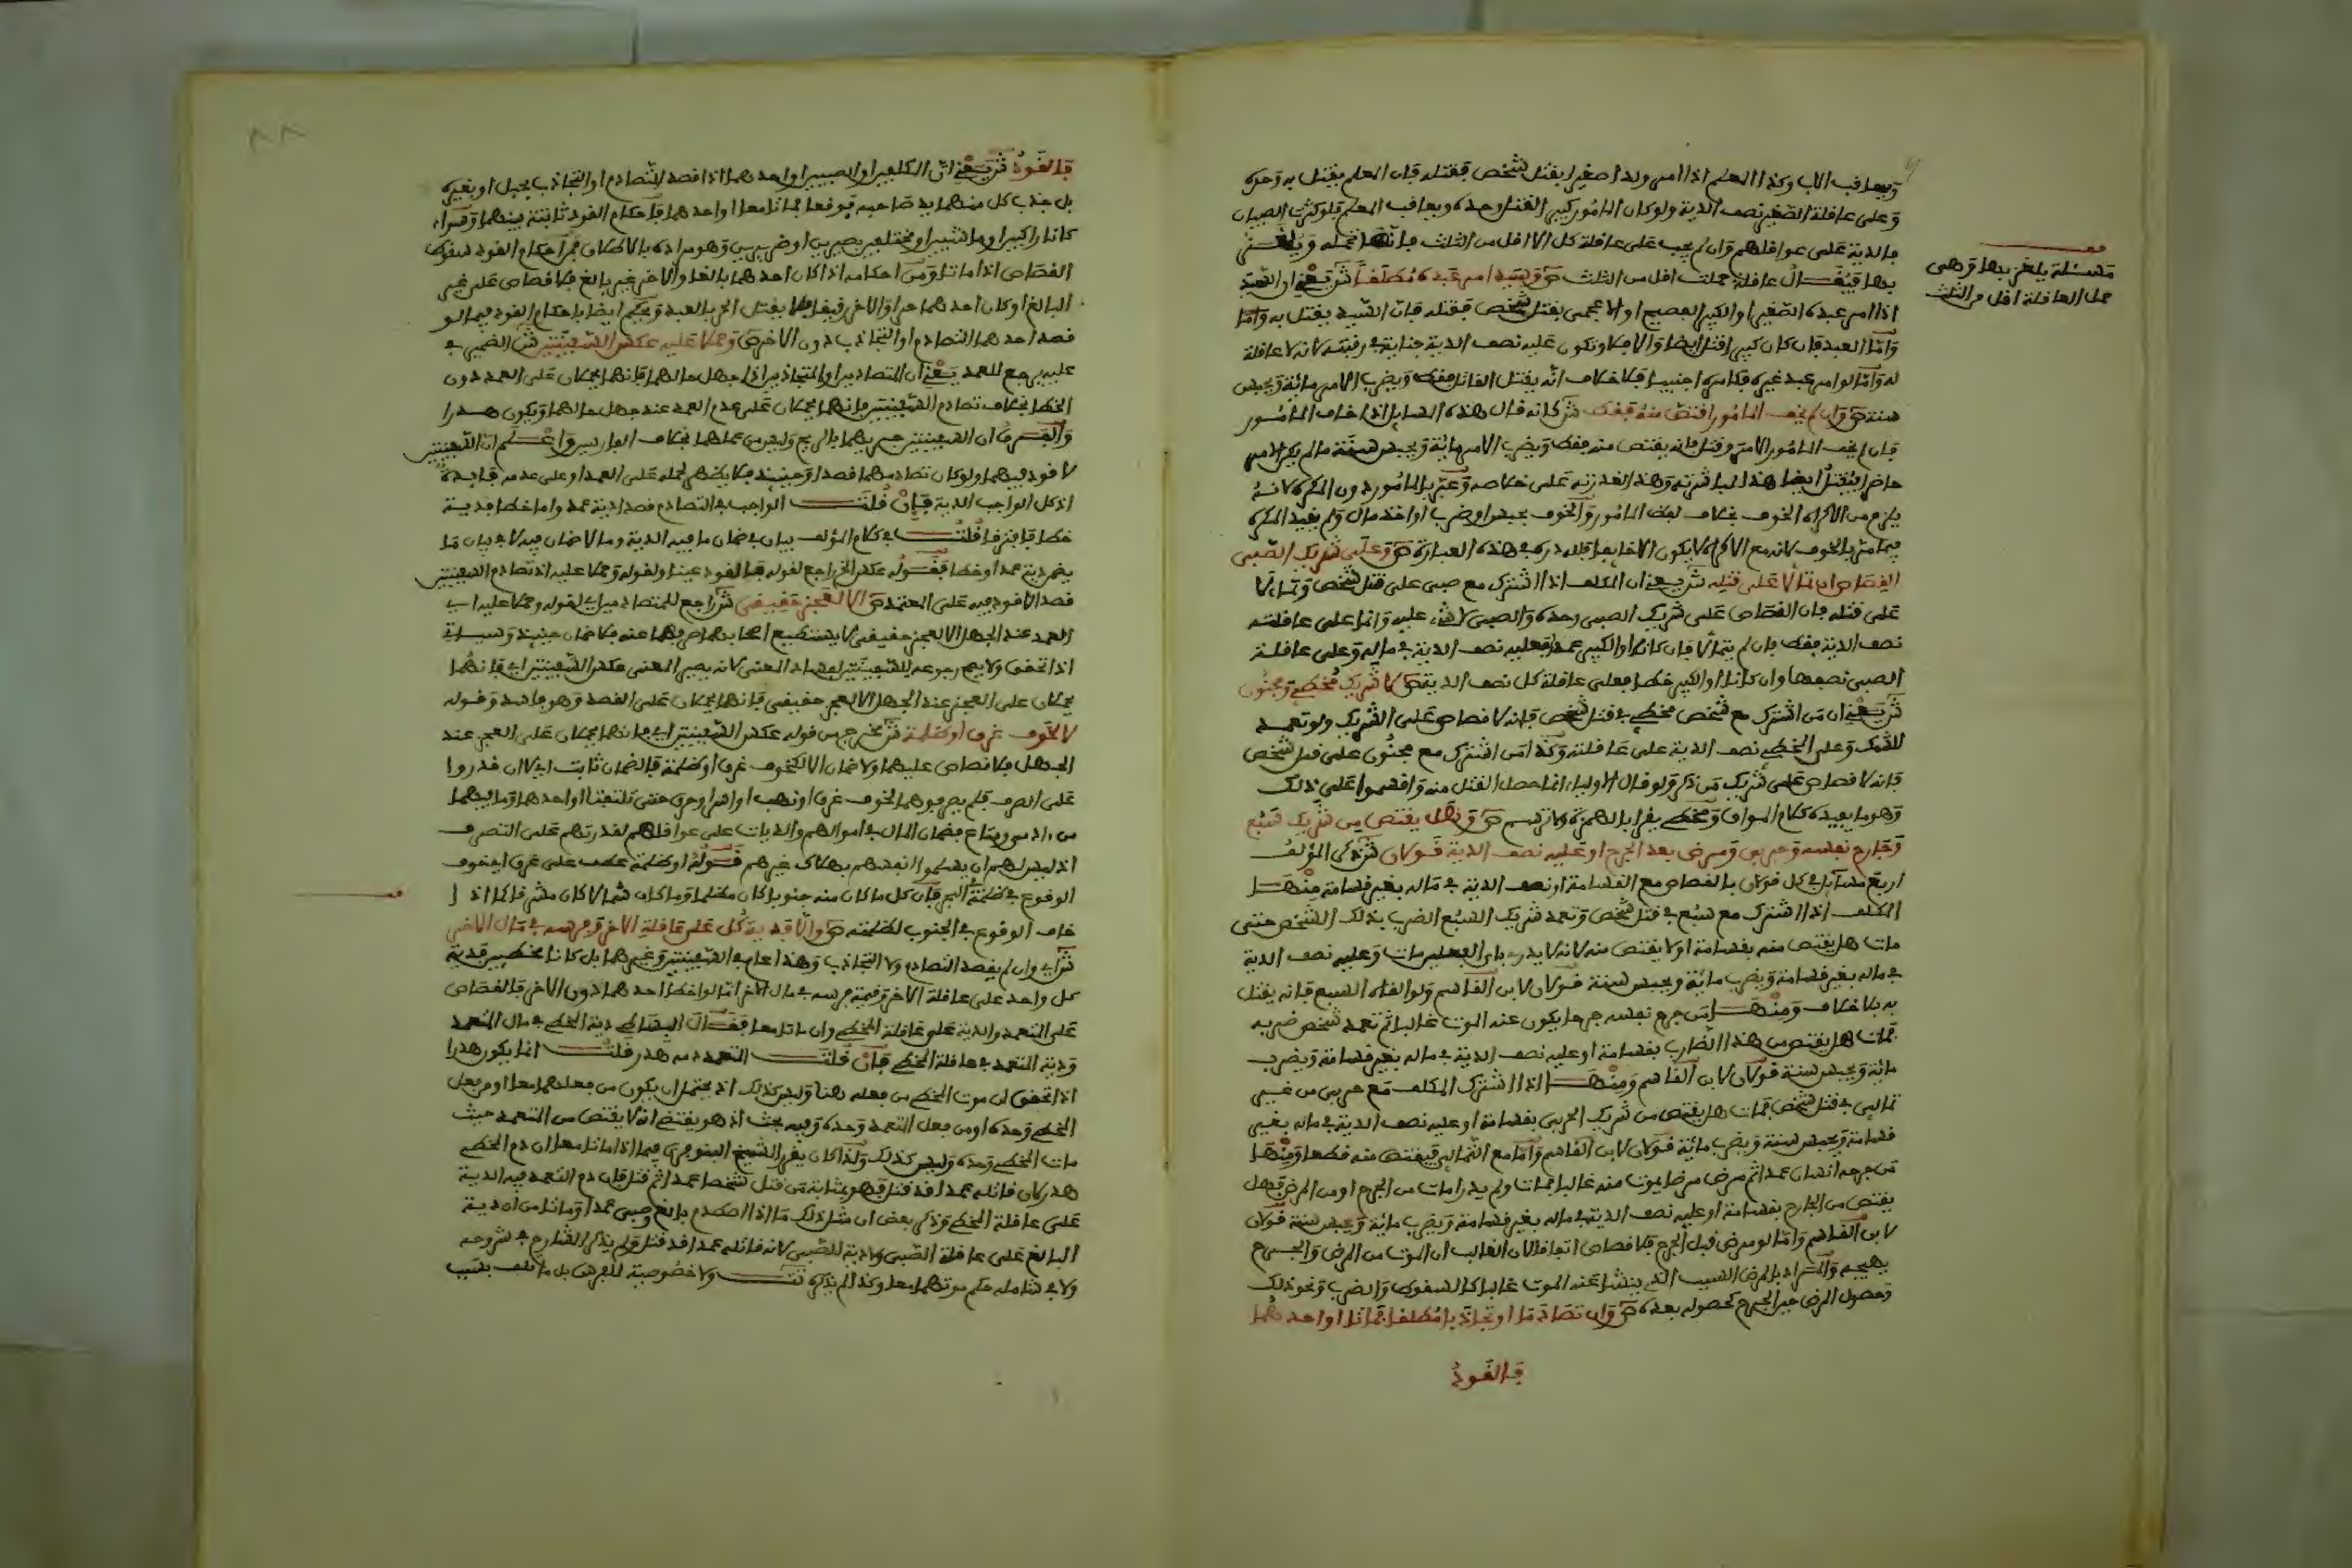 ويعاقب الاب وكذا المعلم اذا امر ولدا صغيرا بقتل شخص فقتله فان المعلم يقتل به وحده
وعلى عاقلة الصغير نصف الدية ولو كان المامور كبيرا اقتل وحده ويعاقب المعلم فلو كثرت الصبيان
فالدية على عواقلهم وان لم يجب على عاقلة كل الا اقل من الثلث فانها تحمله ويلغز
بها فيقال عاقلة حملت اقل من الثلث ص وسيد امر عبده مطلقا ش يعني ان السيد
اذا امر عبده الصغير او الكبير الفصيح او الاعجمي بقتل شخص فقتله فان السيد يقتل به واما
واما العبد فان كان كبيرا قتل ايضا والا فلا وتكون عليه نصف الدية جناية في رقبته لانه لا عاقلة
له واما لو امر عبد غيره فكامره اجنبيا فلا خلاف انه يقتل القاتل فقط ويضرب الامر مائة ويحبس
سنة ص وان لم يخف المامور اقتص منه فقط ش كانه قال هذه المسايل اذا خاف المامور
فان لم يخف المامور الامر وقتل فانه يقتص منه فقط ويضرب الامر مائة ويحبس سنة ما لم يكن الامر
حاضرا يقتل ايضا هذا لمباشرته وهذا لقدرته على خلاصه وعبر بالمامور دون المكره لانه
يلزم من الاكراه الخوف بخلاف لفظ المامور والخوف بحبس او ضرب او اخذ مال ولم يقيد المكره
فيما مر بالخوف لانه مع الاكراه لا يكون الا خايفا فلله دره في هذه العبارة ص وعلى شريك الصبي
القصاص ان تمالا على قتله ش يعني ان المكلف اذا اشترك مع صبي على قتل شخص وتمالا
على قتله فان القصاص على شريك الصبي وحده والصبي لا شيء عليه وانما على عاقلته
نصف الدية فقط فان لم يتمالا فان كانا او الكبير عمدا فعليه نصف الدية في ماله وعلى عاقلة
الصبي نصفها وان كانا او الكبير خطا فعلى عاقلة كل نصف الدية ص لا شريك مخطئ ومجنون
ش يعني ان من اشترك مع شخص مخطئ في قتل شخص فانه لا قصاص على الشريك ولو تعمد
للشك وعلى المخطئ نصف الدية على عاقلته وكذا من اشترك مع مجنون على قتل شخص
فانه لا قصاص على شريك من ذكر ولو قال الاولياء انما حصل القتل منه واقسموا على ذلك
وهو ما يفيده كلام المواق ومخطئ يقرا بالهمزة ص وهل يقتص من شريك سبع
وجارح نفسه وحربي ومرض بعد الجرح او عليه نصف الدية قولان ش ذكر المؤلف
اربع مسايل في كل قولان بالقصاص مع القسامة او نصف الدية في ماله بغير قسامة منها
المكلف اذا اشترك مع سبع في قتل شخص وتعمد شريك السبع الضرب بذلك الشخص حتى
مات هل يقتص منه بقسامة او لا يقتص منه لانه لا يدرى باي الفعلين مات وعليه نصف الدية
في ماله بغير قسامة ويضرب مائة ويحبس سنة قولان لابن القاسم ولو القاه السبع فانه يقتل
به بلا خلاف ومنها من جرح نفسه جرحا يكون عنه الموت غالبا ثم تعمد شخص ضربه
فمات هل يقتص من هذا الضارب بقسامة او عليه نصف الدية في ماله بغير قسامة ويضرب
مائة ويحبس سنة قولان لابن القاسم ومنها اذا اشترك المكلف مع حربي من غير
تمالئ في قتل شخص فمات هل يقتص من شريك الحربي بقسامة او عليه نصف الدية في ماله بغير
قسامة ويحبس سنة ويضرب مائة قولان لابن القاسم واما مع التمالئ فيقتص منه قطعا ومنها
من جرحه انسان عمدا ثم مرض مرضا يموت منه غالبا فمات ولم يدر امات من الجرح او من المرض فهل
يقتص من الجارح بقسامة او عليه نصف الدية في ماله بغير قسامة ويضرب مائة ويحبس سنة قولان
لابن القاسم واما لو مرض قبل الجرح فلا قصاص اتفاقا لان الغالب ان الموت من المرض والجرح
يهيجه والمراد بالمرض السبب الذي ينشا عنه الموت غالبا كالسقوط والضرب ونحو ذلك
وحصول المرض حين الجرح كحصوله بعده ص وان تصادما او تجاذبا مطلقا فماتا او احدهما
فالقود
قف
مسئلة يلغز بها وهي
حمل العاقلة اقل من الثلث
٨٨
فالقود ش يعني ان المكلفين او الصبيين او احدهما اذا قصد التصادم او التجاذب بحبل او بغيره
بل جذب كل منهما يد صاحبه فوقعا فماتا معا او احدهما فاحكام القود ثابتة بينهما وسواء
كانا راكبين او ماشيين او مختلفين بصيرين او ضريرين وهو مراده بالاطلاق فمن احكام القود سقوط
القصاص اذا ماتا ومن احكامه اذا كان احدهما بالغا والاخر غير بالغ فلا قصاص على غير
البالغ او كان احدهما حرا والاخر رقيقا فلا يقتل الحر بالعبد ويحكم ايضا باحكام القود فيما لو
قصد احدهما التصادم او التجاذب دون الاخر ص وحملا عليه عكس السفينتين ش الضمير في
عليه يرجع للعمد يعني ان المتصادمين او المتجاذبين اذا جهل حالهما فانهما يحملان على العمد دون
الخطا بخلاف تصادم السفينتين فانهما يحملان على عدم العمد عند جهل حالهما ويكون هدرا
والفرق ان السفينتين جريهما بالريح وليس من عملهما بخلاف الفارسين واعلم ان السفينتين
لا قود فيهما ولو كان تصادمهما قصدا وحينئذ فلا يظهر لحمله على العمد او على عدمه فايدة
اذ كل الواجب الدية فان قلت الواجب في التصادم قصدا دية عمد واما خطا فدية
خطا فافترقا قلت في كلام المؤلف بيان في ضمان ما فيه الدية وما لا ضمان فيه لا في بيان ما
يضم دية عمد او خطا فقوله عكس الخ راجع لقوله فالقود عينا ولقوله وحملا عليه اذ تصادم السفينتين
قصدا لا قود فيه على المعتمد ص الا لعجز حقيقي ش راجع للمتصادمين اي لقوله وحملا عليه اي
العمد عند الجهل الا لعجز حقيقي لا يستطيع اصحابهما صرفهما عنه فلا ضمان حينئذ وسياتي
اذا تحقق ولا يصح رجوعه للسفينتين لفساد المعنى لانه يصير المعنى عكس السفينتين اي فانهما
يحملان على العجز عند الجهل الا لعجز حقيقي فانهما يحملان على القصد وهو فاسد وقوله
لا لخوف غرق او ظلمة ش مخرج من قوله عكس السفينتين اي فانهما يحملان على العجز عند
الجهل فلا قصاص عليهما ولا ضمان الا لكخوف غرق او ظلمة فالضمان ثابت اي لان قدروا
على الصرف فلم يصرفوهما لخوف غرق او نهب او اسر او حرق حتى تلفتا او احدهما وما فيهما
من ادمي ومتاع فضمان المال في اموالهم والديات على عواقلهم لقدرتهم على التصرف
اذ ليس لهم ان يسلموا انفسهم بهلاك غيرهم قوله او ظلمة عطف على غرق اي خوف
الوقوع في ظلمة البحر فان كل ما كان منه جنوبا كان مظلما وما كان شمالا كان مشرقا كما اذا
خاف الوقوع في الجنوب لظلمته ص والا فدية كل على عاقلة الاخر وفرسه في مال الاخر
ش اي وان لم يقصد التصادم ولا التجاذب وهذا عام في السفينتين وغيرهما بل كانا مخطئين فدية
كل واحد على عاقلة الاخر وقيمة فرسه في مال الاخر اما لو اخطا احدهما دون الاخر فالقصاص
على المتعمد والدية على عاقلة المخطئ وان ماتا معا فقال البساطي دية المخطئ في مال المتعمد
ودية المتعمد في عاقلة المخطئ فان قلت المتعمد دمه هدر قلت انما يكون هدرا
اذا تحقق ان موت المخطئ من فعله هنا وليس كذلك اذ يحتمل ان يكون من فعلهما معا او من فعل
المخطئ وحده او من فعل المتعمد وحده وفيه بحث اذ هو يقتضي انه لا يقتص من المتعمد حيث
مات المخطئ وحده وليس كذلك ولذا كان يقرر الشيخ البنوفري فيما اذا ماتا معا ان دم المخطئ
هدر لان قاتله عمدا قد قتل فهو بمثابة من قتل شخصا عمدا ثم قتل فان دم المتعمد فيه الدية
على عاقلة المخطئ وذكر بعض ان مثل ذلك ما اذا اصطدم بالغ وصبي عمدا وماتا من ان دية
البالغ على عاقلة الصبي ولا دية للصبي لانه قاتله عمدا قد قتل ولم يذكر الشارح في شروحه
ولا في شامله حكم موتهما معا وكذا لم يذكره تت ولا خصوصية للفرس بل ما تلف بسبب
قف